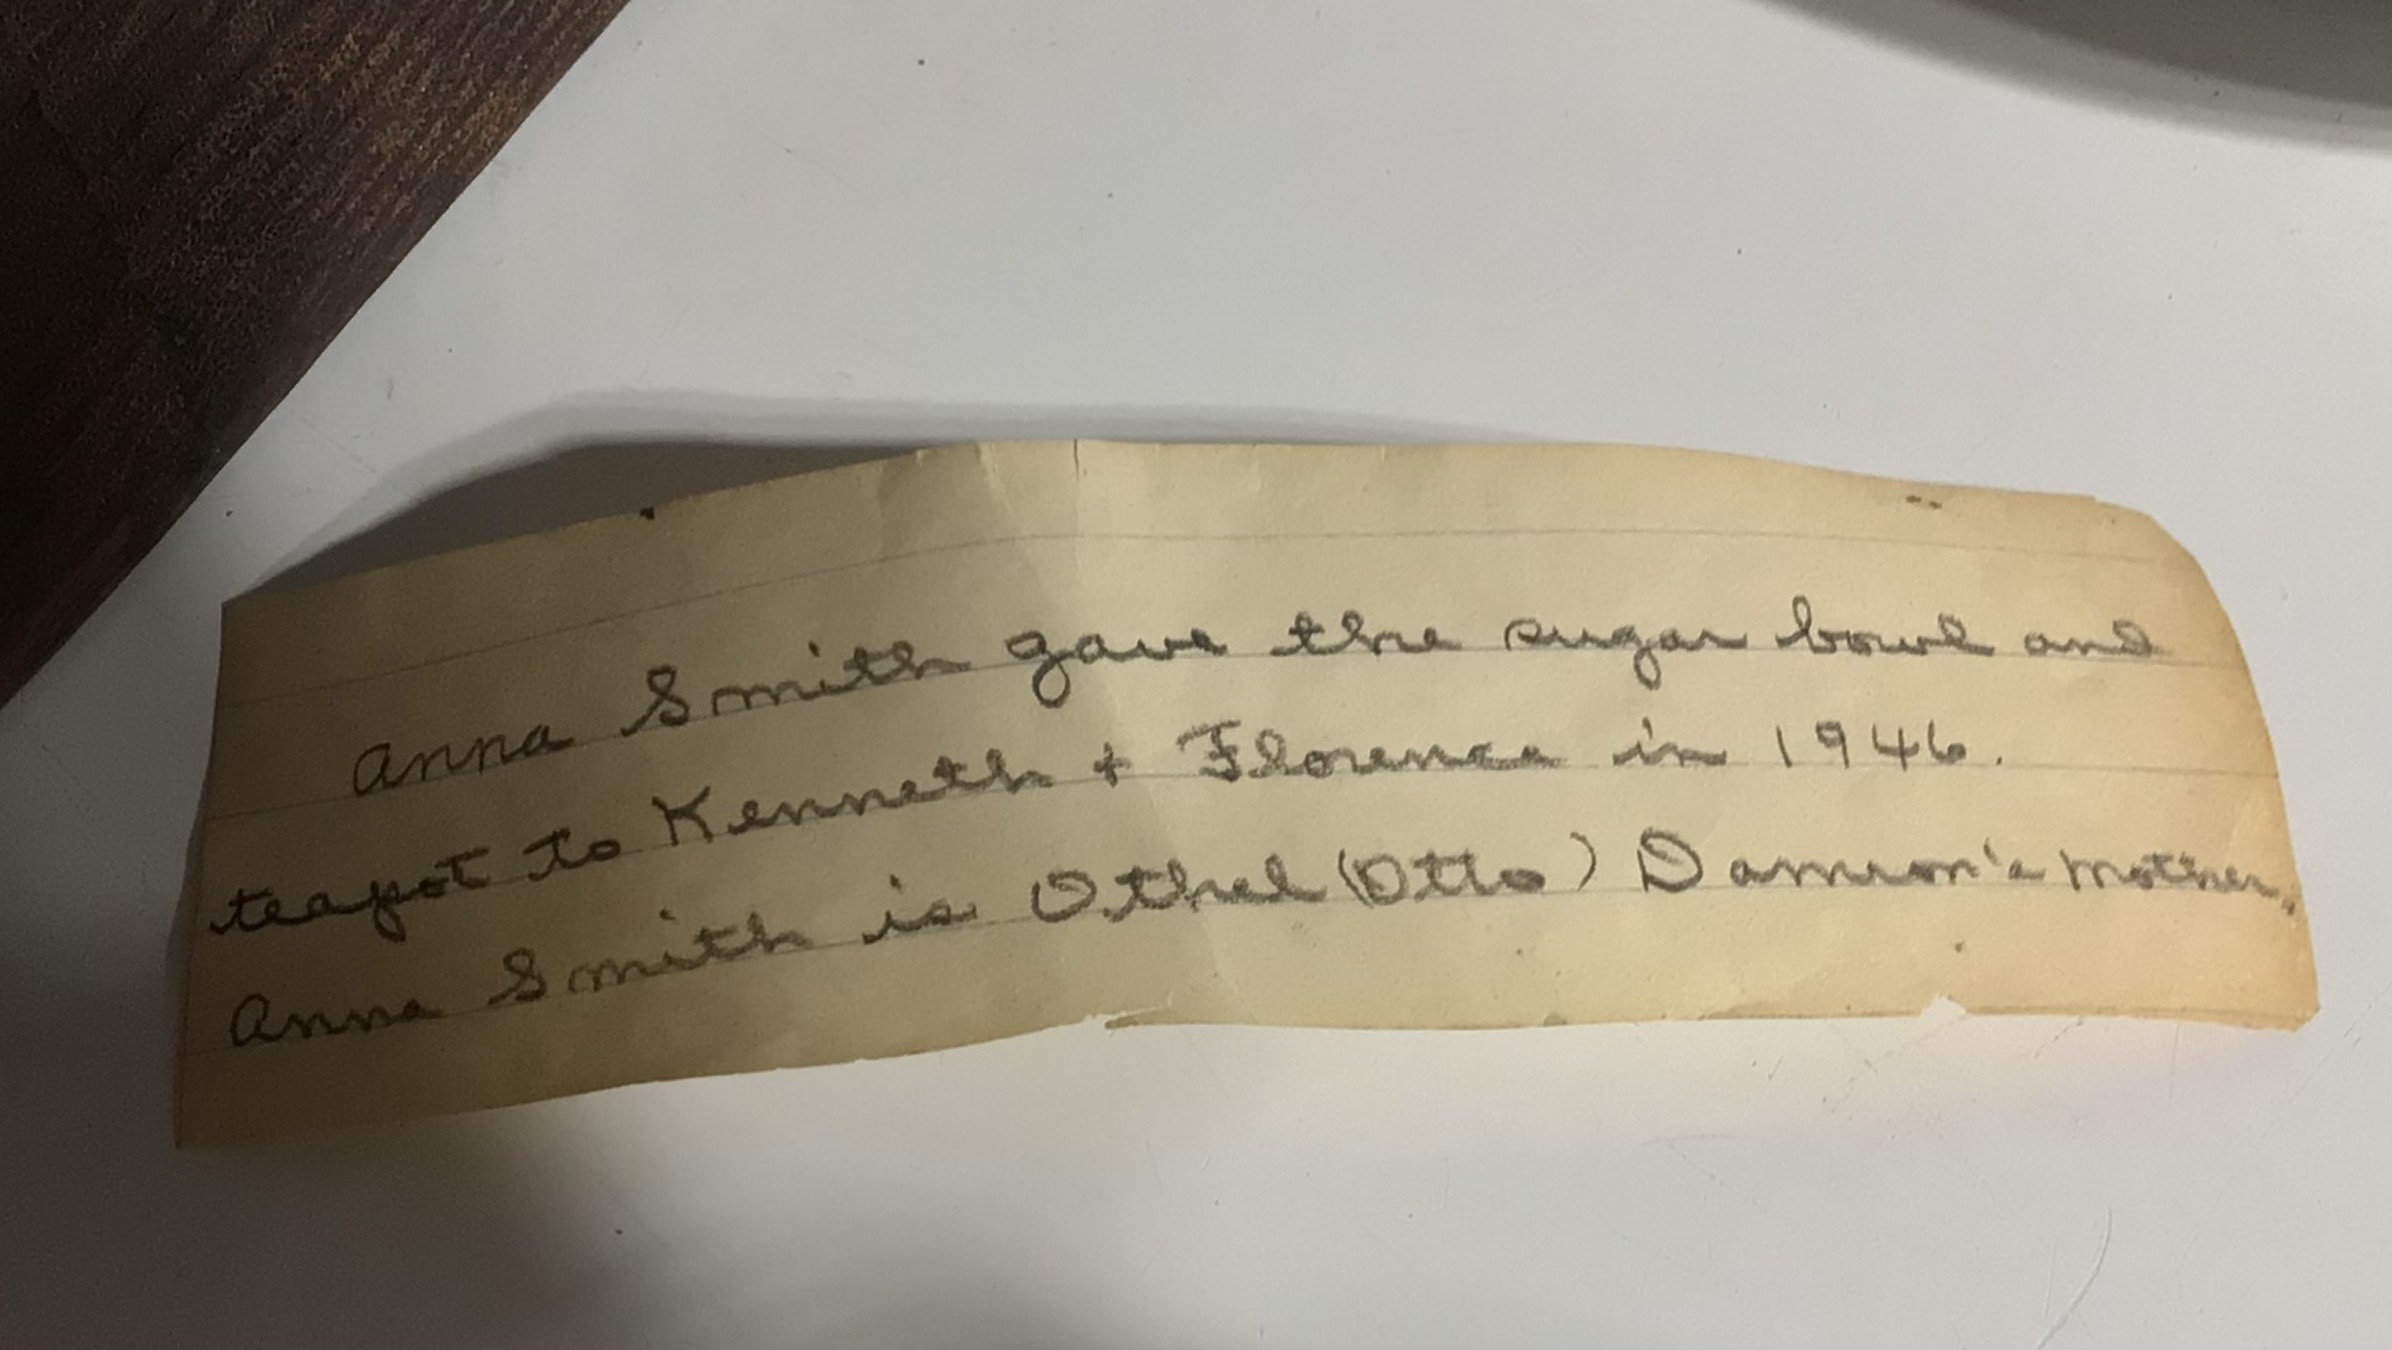 Anna Smith gave the sugar bowl and
teapot to Kenneth + Florence in 1946.
Anna Smith is Othel (Otto) Damron's mother.